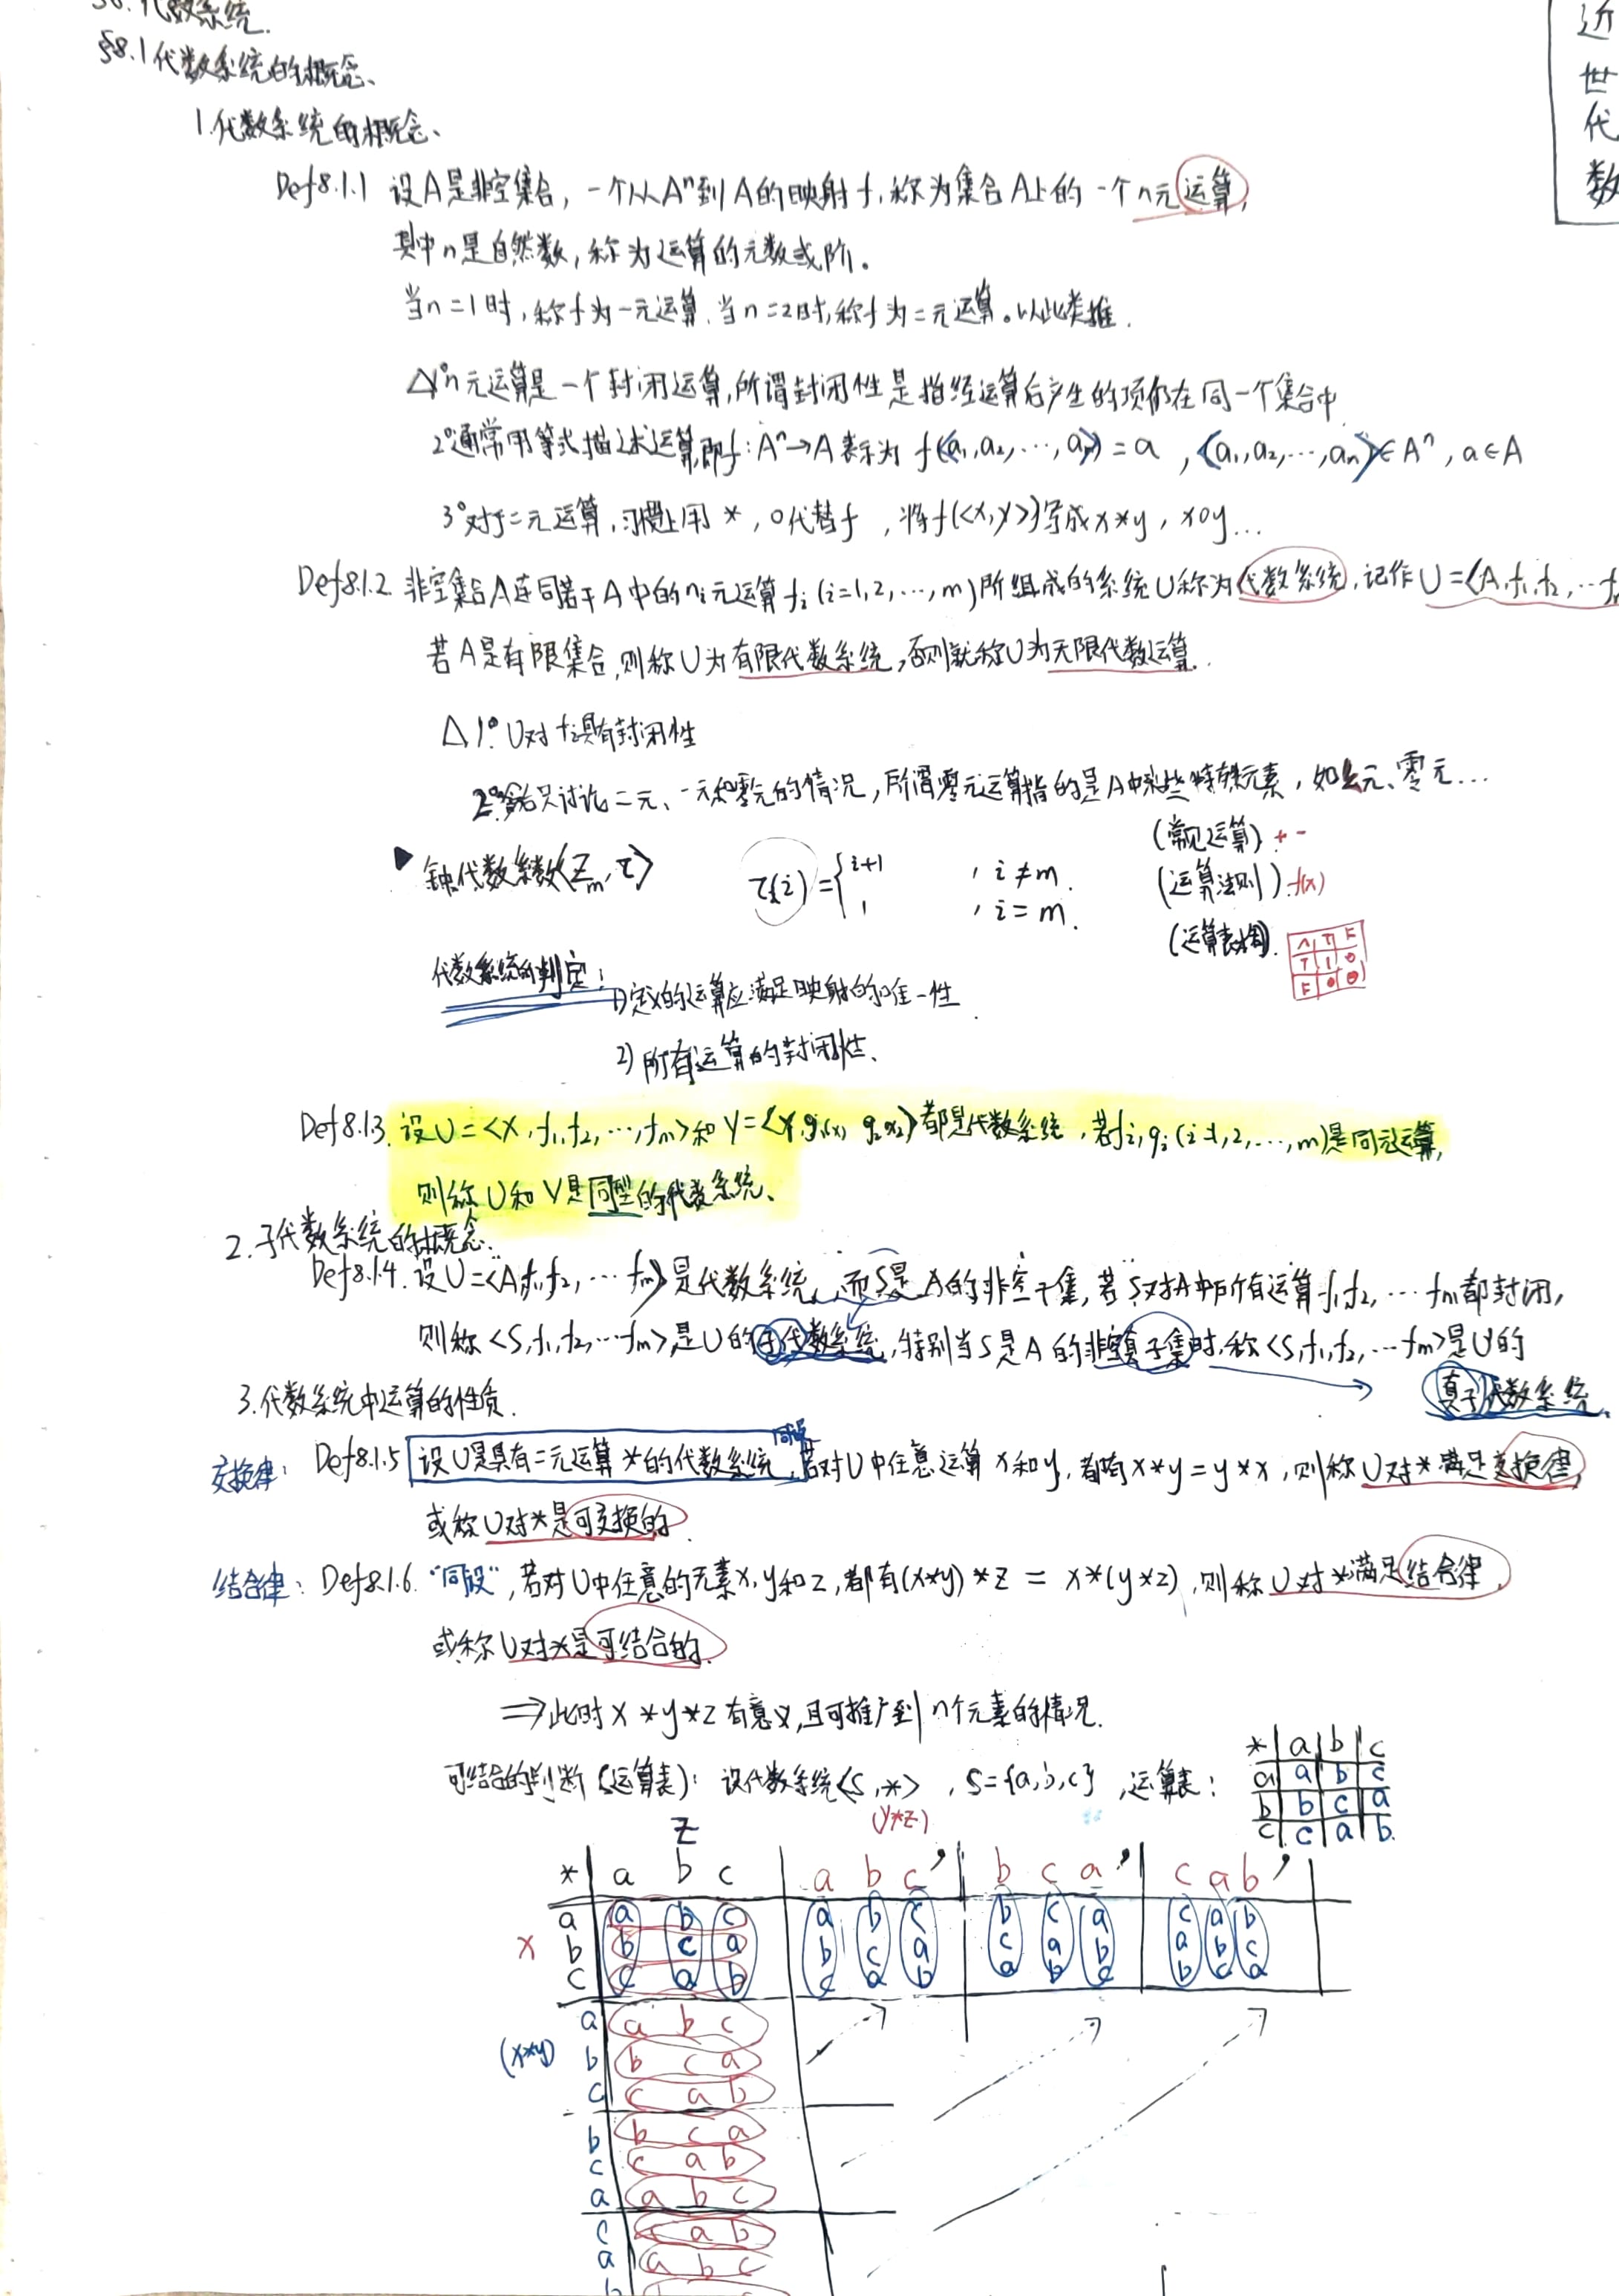 近世代数
§8. 代数系统.
§8.1 代数系统的概念、
1.代数系统的概念、
Def8.1.1 设A是非空集合，一个从Aⁿ到A的映射f，称为集合A上的一个n元运算，
其中n是自然数，称为运算的元数或阶。
当n=1时，称f为一元运算，当n=2时，称f为二元运算。以此类推.
△1° n元运算是一个封闭运算，所谓封闭性是指经运算后产生的项仍在同一个集合中
2°通常用等式描述运算，即f：Aⁿ→A表示为 f(<a₁,a₂,…,aₙ>)=a ，<a₁,a₂,…,aₙ>∈Aⁿ，a∈A
3°对于二元运算，习惯上用 *，o代替f，将f(<x,y>)写成x*y，xoy…
Def8.1.2. 非空集合A连同若干A中的nᵢ元运算fᵢ(i=1,2,…,m)所组成的系统U称为代数系统，记作U=<A,f₁,f₂,…f
若A是有限集合，则称U为有限代数系统，否则就称U为无限代数运算.
△1°. U对fᵢ具有封闭性
2° 只讨论二元、一元和零元的情况，所谓零元运算指的是A中某些特殊元素，如幺元、零元…
▶ 钟代数系数<Zₘ,τ> τ(i)={ i+1 ，i≠m.
1 ，i=m.
(常见运算) + -
(运算法则) f(x)
(运算表格).
∧ T F
T 1 0
F 0 0
代数系统的判定：1)定义的运算应满足映射的唯一性.
2) 所有运算的封闭性、
Def8.1.3. 设U=<X,f₁,f₂,…,fₘ>和V=<Y,g₁(x₁) g₂(x₂)>都是代数系统，若fᵢ,gᵢ(i=1,2,…,m)是同元运算，
则称U和V是同型的代数系统、
2.子代数系统的概念.
Def8.1.4. 设U=<A,f₁,f₂,…fₘ>是代数系统，而S是A的非空子集，若S对A中所有运算f₁,f₂,…fₘ都封闭，
则称<S,f₁,f₂,…fₘ>是U的子代数系统，特别当S是A的非空真子集时，称<S,f₁,f₂,…fₘ>是U的
真子代数系统.
3.代数系统中运算的性质.
同设
交换律： Def8.1.5 设U是具有二元运算*的代数系统，若对U中任意运算x和y，都有x*y=y*x，则称U对*满足交换律，
或称U对*是可交换的.
结合律： Def8.1.6. “同设”，若对U中任意的元素x,y和z，都有(x*y)*z = x*(y*z)，则称U对*满足结合律，
或称U对*是可结合的.
⇒此时x*y*z有意义，且可推广到n个元素的情况.
可结合的判断(运算表)： 设代数系统<S,*>，S={a,b,c}，运算表：
* a b c
a a b c
b b c a
c c a b.
z (y*z)
* a b c a b c’ b c a’ c a b’
x
a a b c a b c b c a c a b
b b c a b c a c a b a b c
c c a b c a b a b c b c a
(x*y)
a a b c
b b c a
c c a b
b b c a
c c a b
a a b c
c c a b
a a b c
b